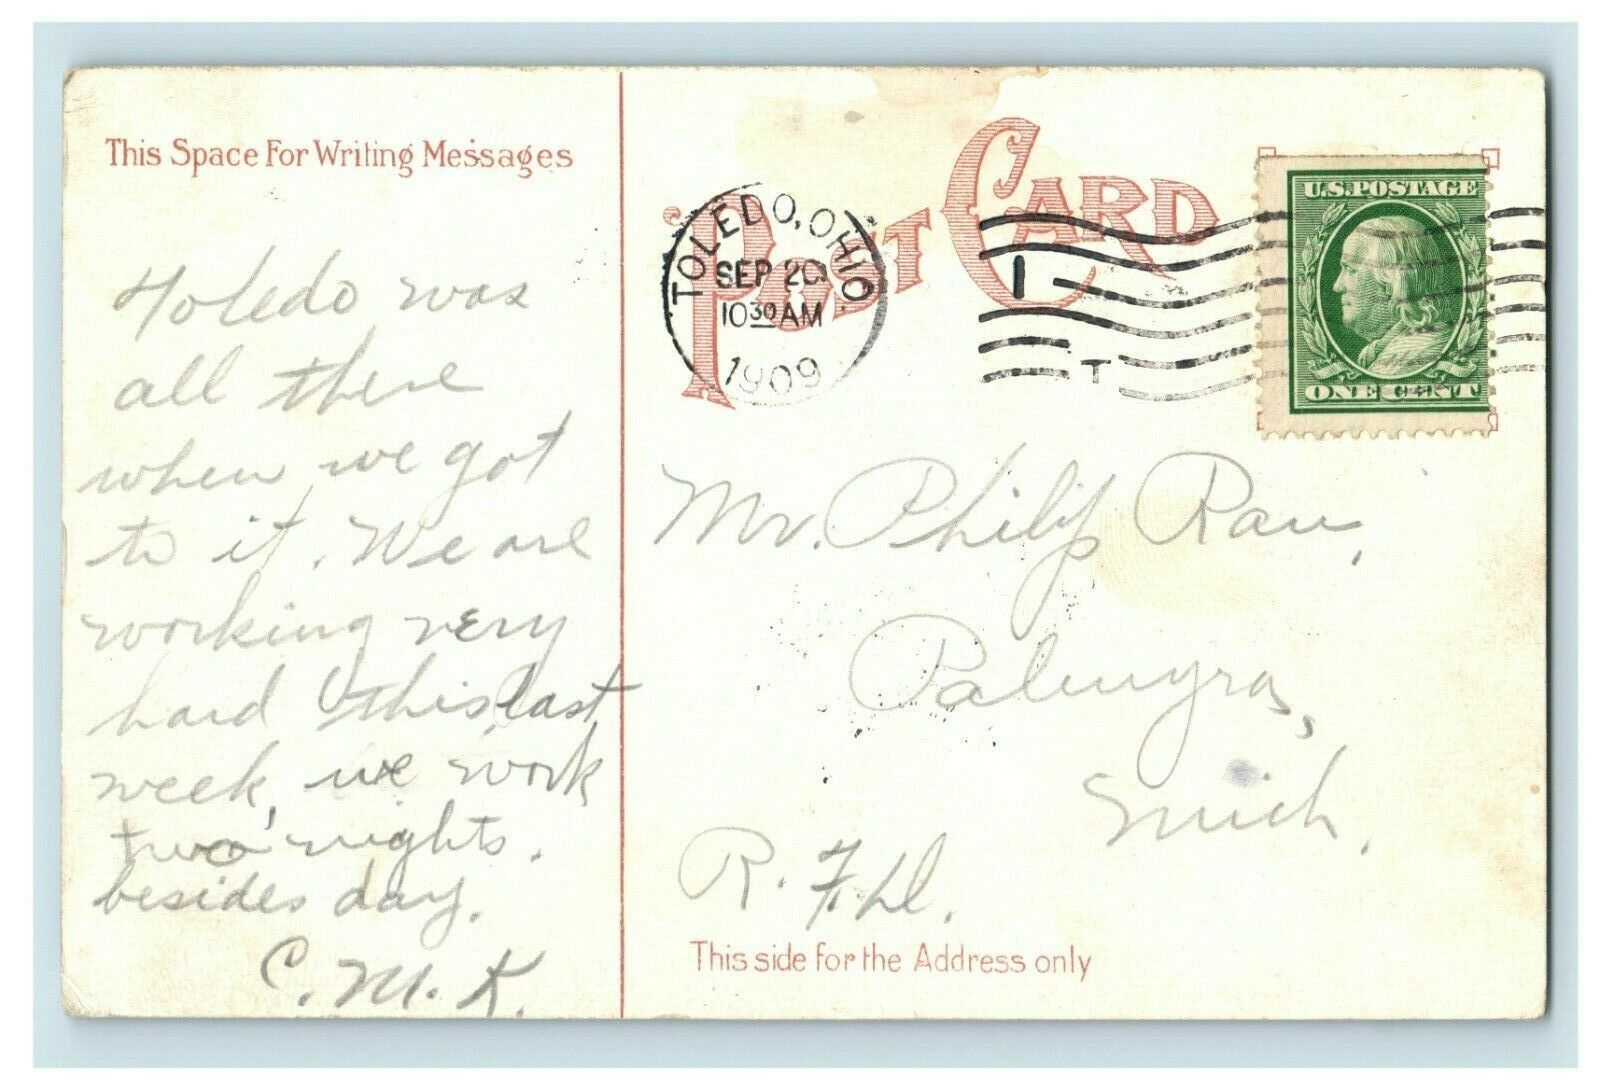 This Space For Writing Messages
Toledo was
all there
when we got
to it. We are
working very
hard this last
week, we work
two nights.
besides day.
C. M. K.
POST CARD
TOLEDO, OHIO.
SEP 20
10 30 AM
1909
1
T
U.S. POSTAGE
ONE CENT
Mr. Philip Rau,
Palmyra,
Mich.
R. F. D.
This side for the Address only